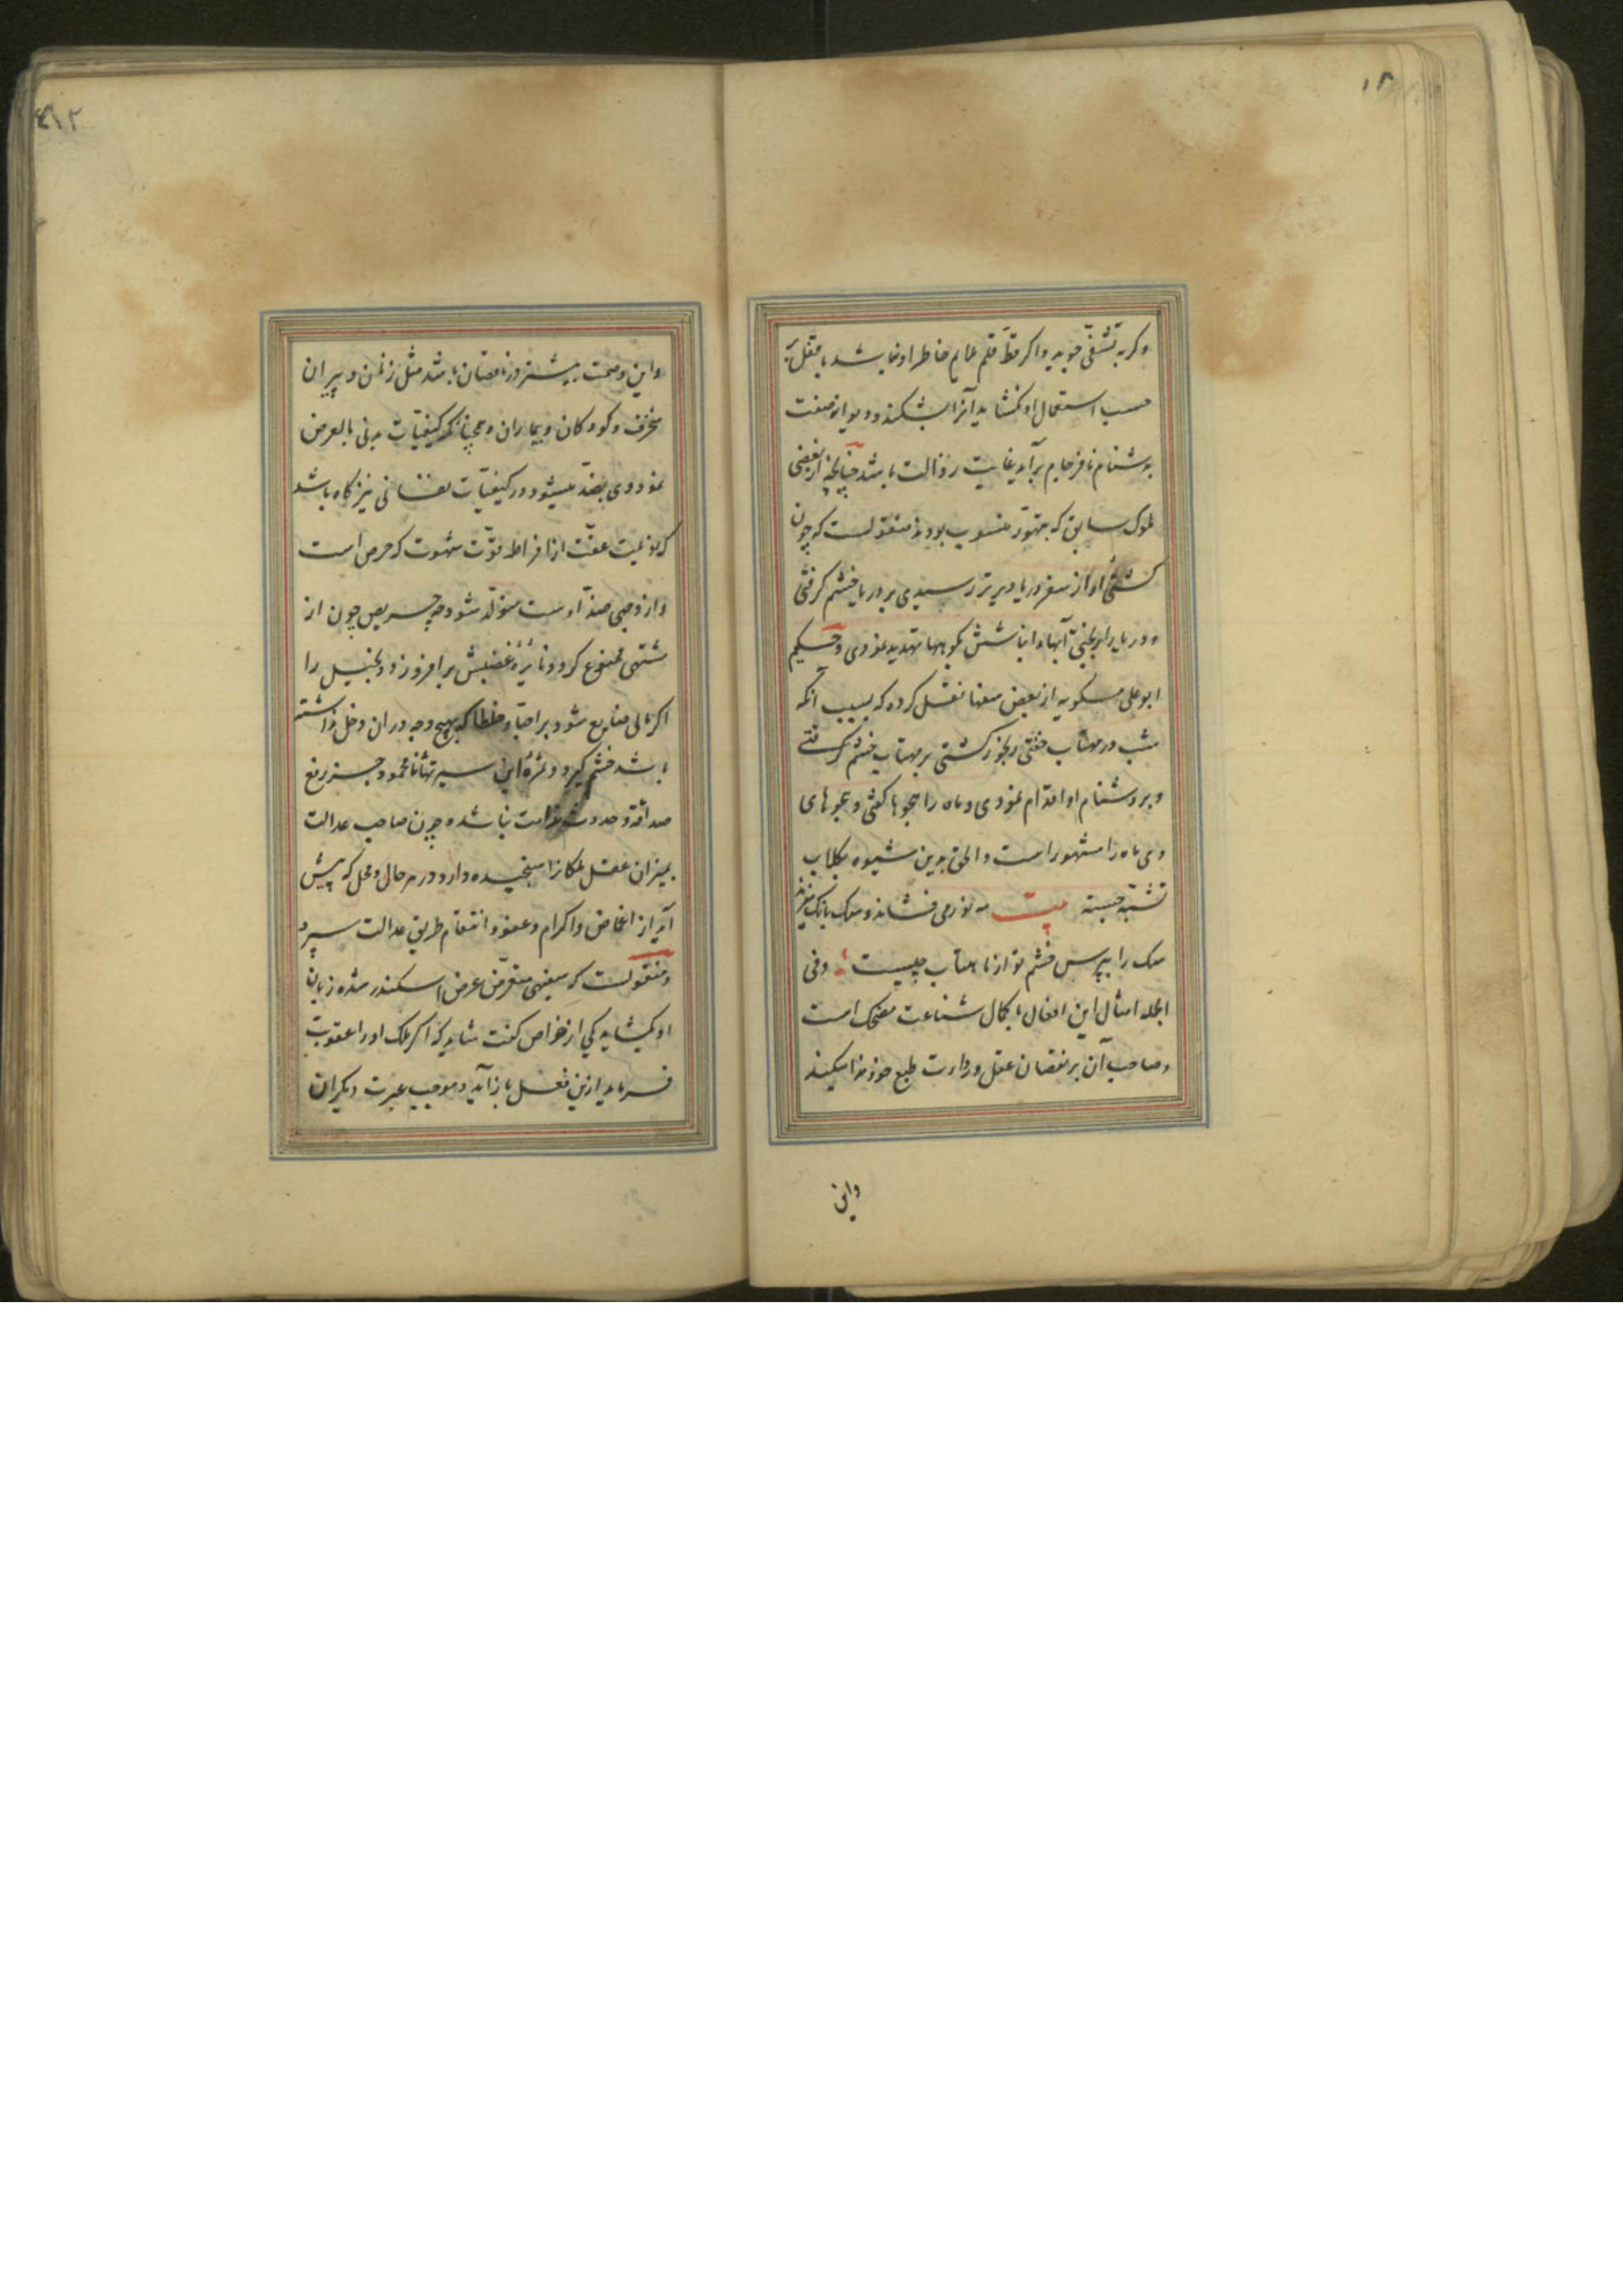 ۱۸
وکربه تشفّی جوید واکر قطّ قلم ملایم خاطر او نباشد یا قفل بر
حسب استعمال او نکشاید آنرا بشکند و دیوانه صفت
بدشنام نافرجام برآید غایت رذالت باشد چنانچه از بعضی
ملوک سابق که بتهوّر منسوب بودند منقولست که چون
کشتئ او از سفر دریا دیرتر رسیدی بر دریا خشم کرفتی
و دریا را بریختن آبها و انباشتن بکوهها تهدید نمودی و حکیم
ابوعلی مسکویه از بعض سفها نقل کرده که بسبب آنکه
شب در مهتاب خفتی رنجور کشتی بر مهتاب خشم کرفتے
و بر دشنام او اقدام نمودی و ماه را هجوها کفتی و هجوهای
وی ماه را مشهور است والحق بدین شیوه بکلاب
تشبّه جسته بیت مه نور می فشاند و سک بانک میزند
سک را بپرس خشم تو از ماهتاب چیست وفی
الجمله امثال این افعال با کمال شناعت مضحک است
و صاحب آن بر نقصان عقل و رداءت طبع خود ندا میکند
واین
واین وصمت بیشتر در ناقصان باشد مثل زنان و پیران
مخرف وکودکان وبیماران وهمچنانکه کیفیّات بدنی بالعرض
نمودوی بضدّ میشود در کیفیّات نفسانی نیز کاه باشد
که رذیلت عفّت از افراط قوّت شهوت که حرص است
واز وجهی ضدّ اوست متولّد شود چه حریص چون از
مشتهی ممنوع کردد نائرهٔ غضبش برافروزد و بخیل را
اکر مالی ضایع شود بر احبّا و خلطا که بهیچ وجه در ان دخل نداشته
باشد خشم کیرد و ثمرهٔ این سیرتها نامحمود جز رفع
صداقة و حدوث ندامت نباشد و چون صاحب عدالت
بمیزان عقل ملکات را سنجیده دارد در هر حال و محل که پیش
آید از اغماض و اکرام و عفو و انتقام طریق عدالت سپرد
ومنقولست که سفیهی متعرّض عرض اسکندر شده زبان
او بکشاید یکی از خواص کفت شاید که اکر ملک او را عقوبت
فرماید ازین فعل باز آید و موجب عبرت دیکران